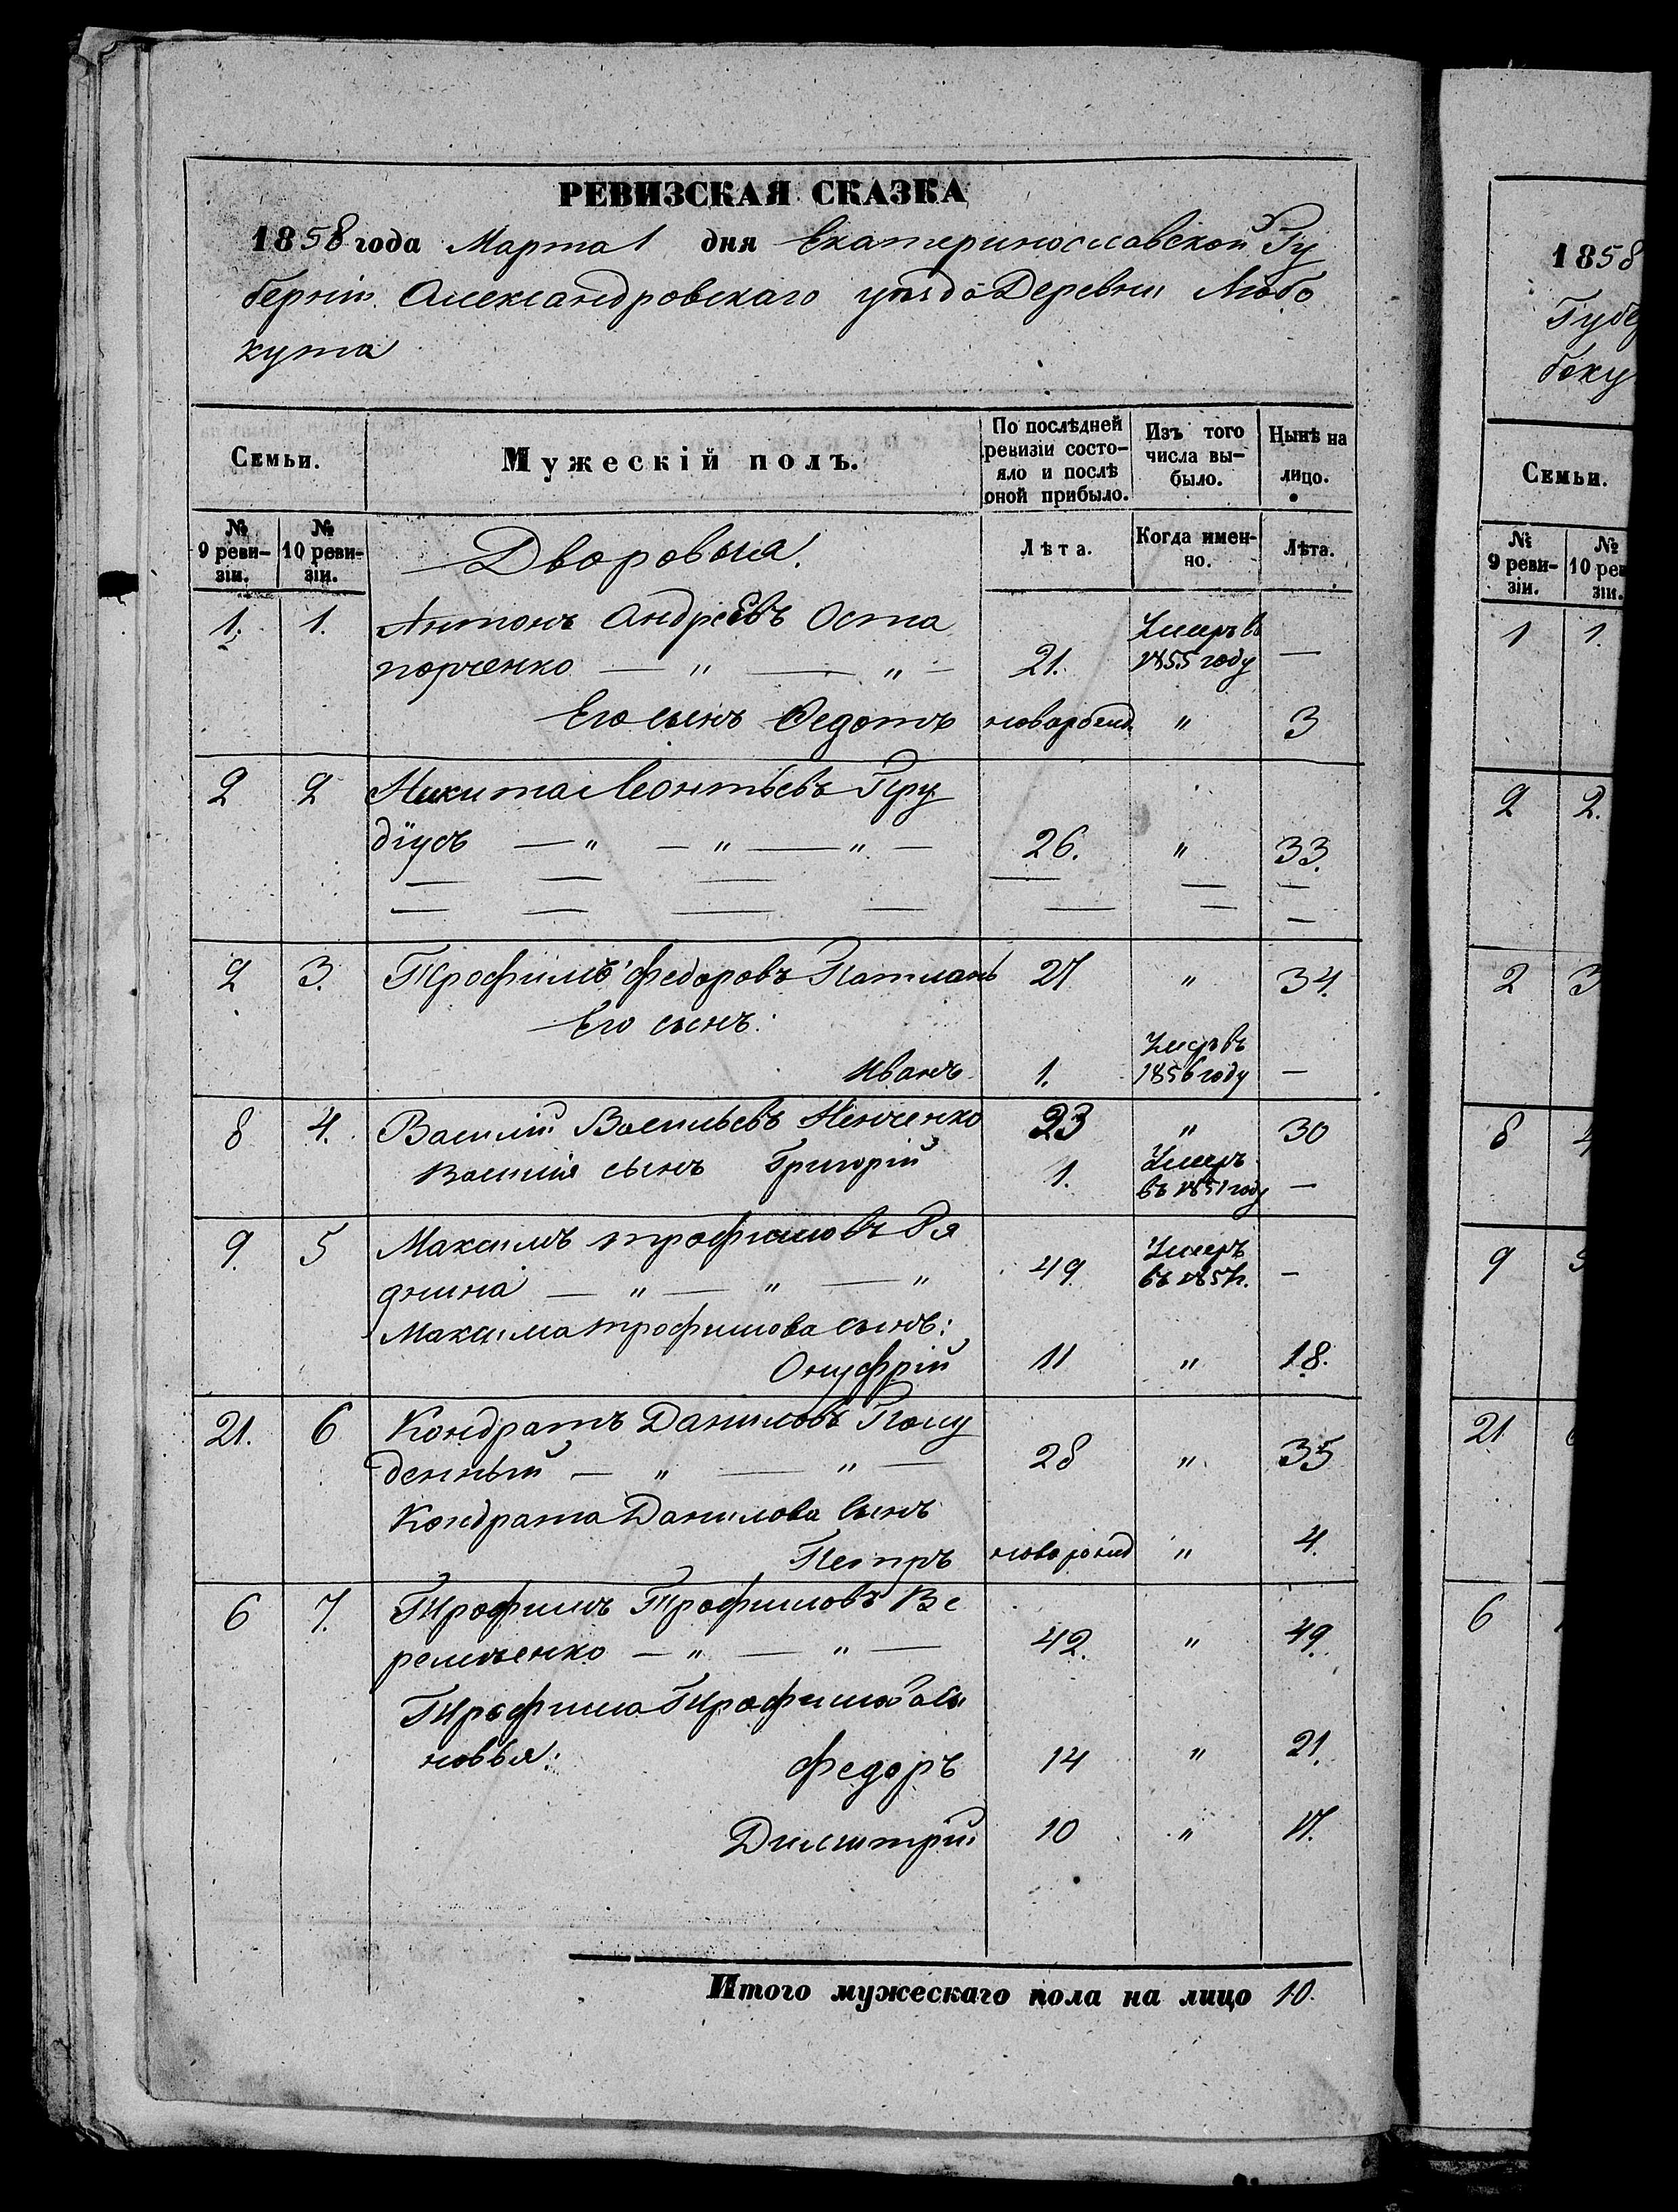 РЕВИЗСКАЯ СКАЗКА
1858 года Марта 1 дня Екатеринославской Гу
берніи Александровскаго уѣзда Деревни Любо
кута
Семьи. Мужескій полъ. По послѣдней ревизіи состо- яло и послѣ оной прибыло. Изъ того числа вы- было. Нынѣ на лицо.
№ 9 реви- зіи. № 10 реви- зіи. Дворовыя. Лѣта. Когда имен- но. Лѣта.
1. 1. Антонъ Андреевъ Оста
порченко — " — " — 21. Умеръ в 1855 году —
Его сынъ Федотъ новорожд. " 3
2 2 Никита Леонтьевъ Пру
діусъ — " — " — " — 26. " 33.
2 3. Трофимъ Федоровъ Патланъ 27 " 34.
Его сынъ:
Иванъ 1. Умеръ въ 1856 году —
8 4. Василій Васильевъ Ненченко 23 " 30
Василія сынъ Григорій 1. Умеръ въ 1851 году —
9. 5 Максимъ Трофимовъ Ря
днина — " — " — " 49 Умеръ въ 1857г. —
Максима Трофимова сынъ:
Онуфрій 11 " 18.
21. 6 Кондратъ Даниловъ Полу
денный — " — " — 28 " 35
Кондрата Данилова сынъ
Петръ новорожд " 4.
6 7. Трофимъ Трофимовъ Ве
ремченко — " — " — 42. " 49.
Трофима Трофимова сы
новья:
Федоръ 14 " 21.
Димитрій 10 " 17.
Итого мужескаго пола на лицо 10.
1858
Губе
боку
Семьи.
№ 9 реви- зіи. № 10 рев зіи.
1 1.
2 2.
2 3
8 4
9
21
6